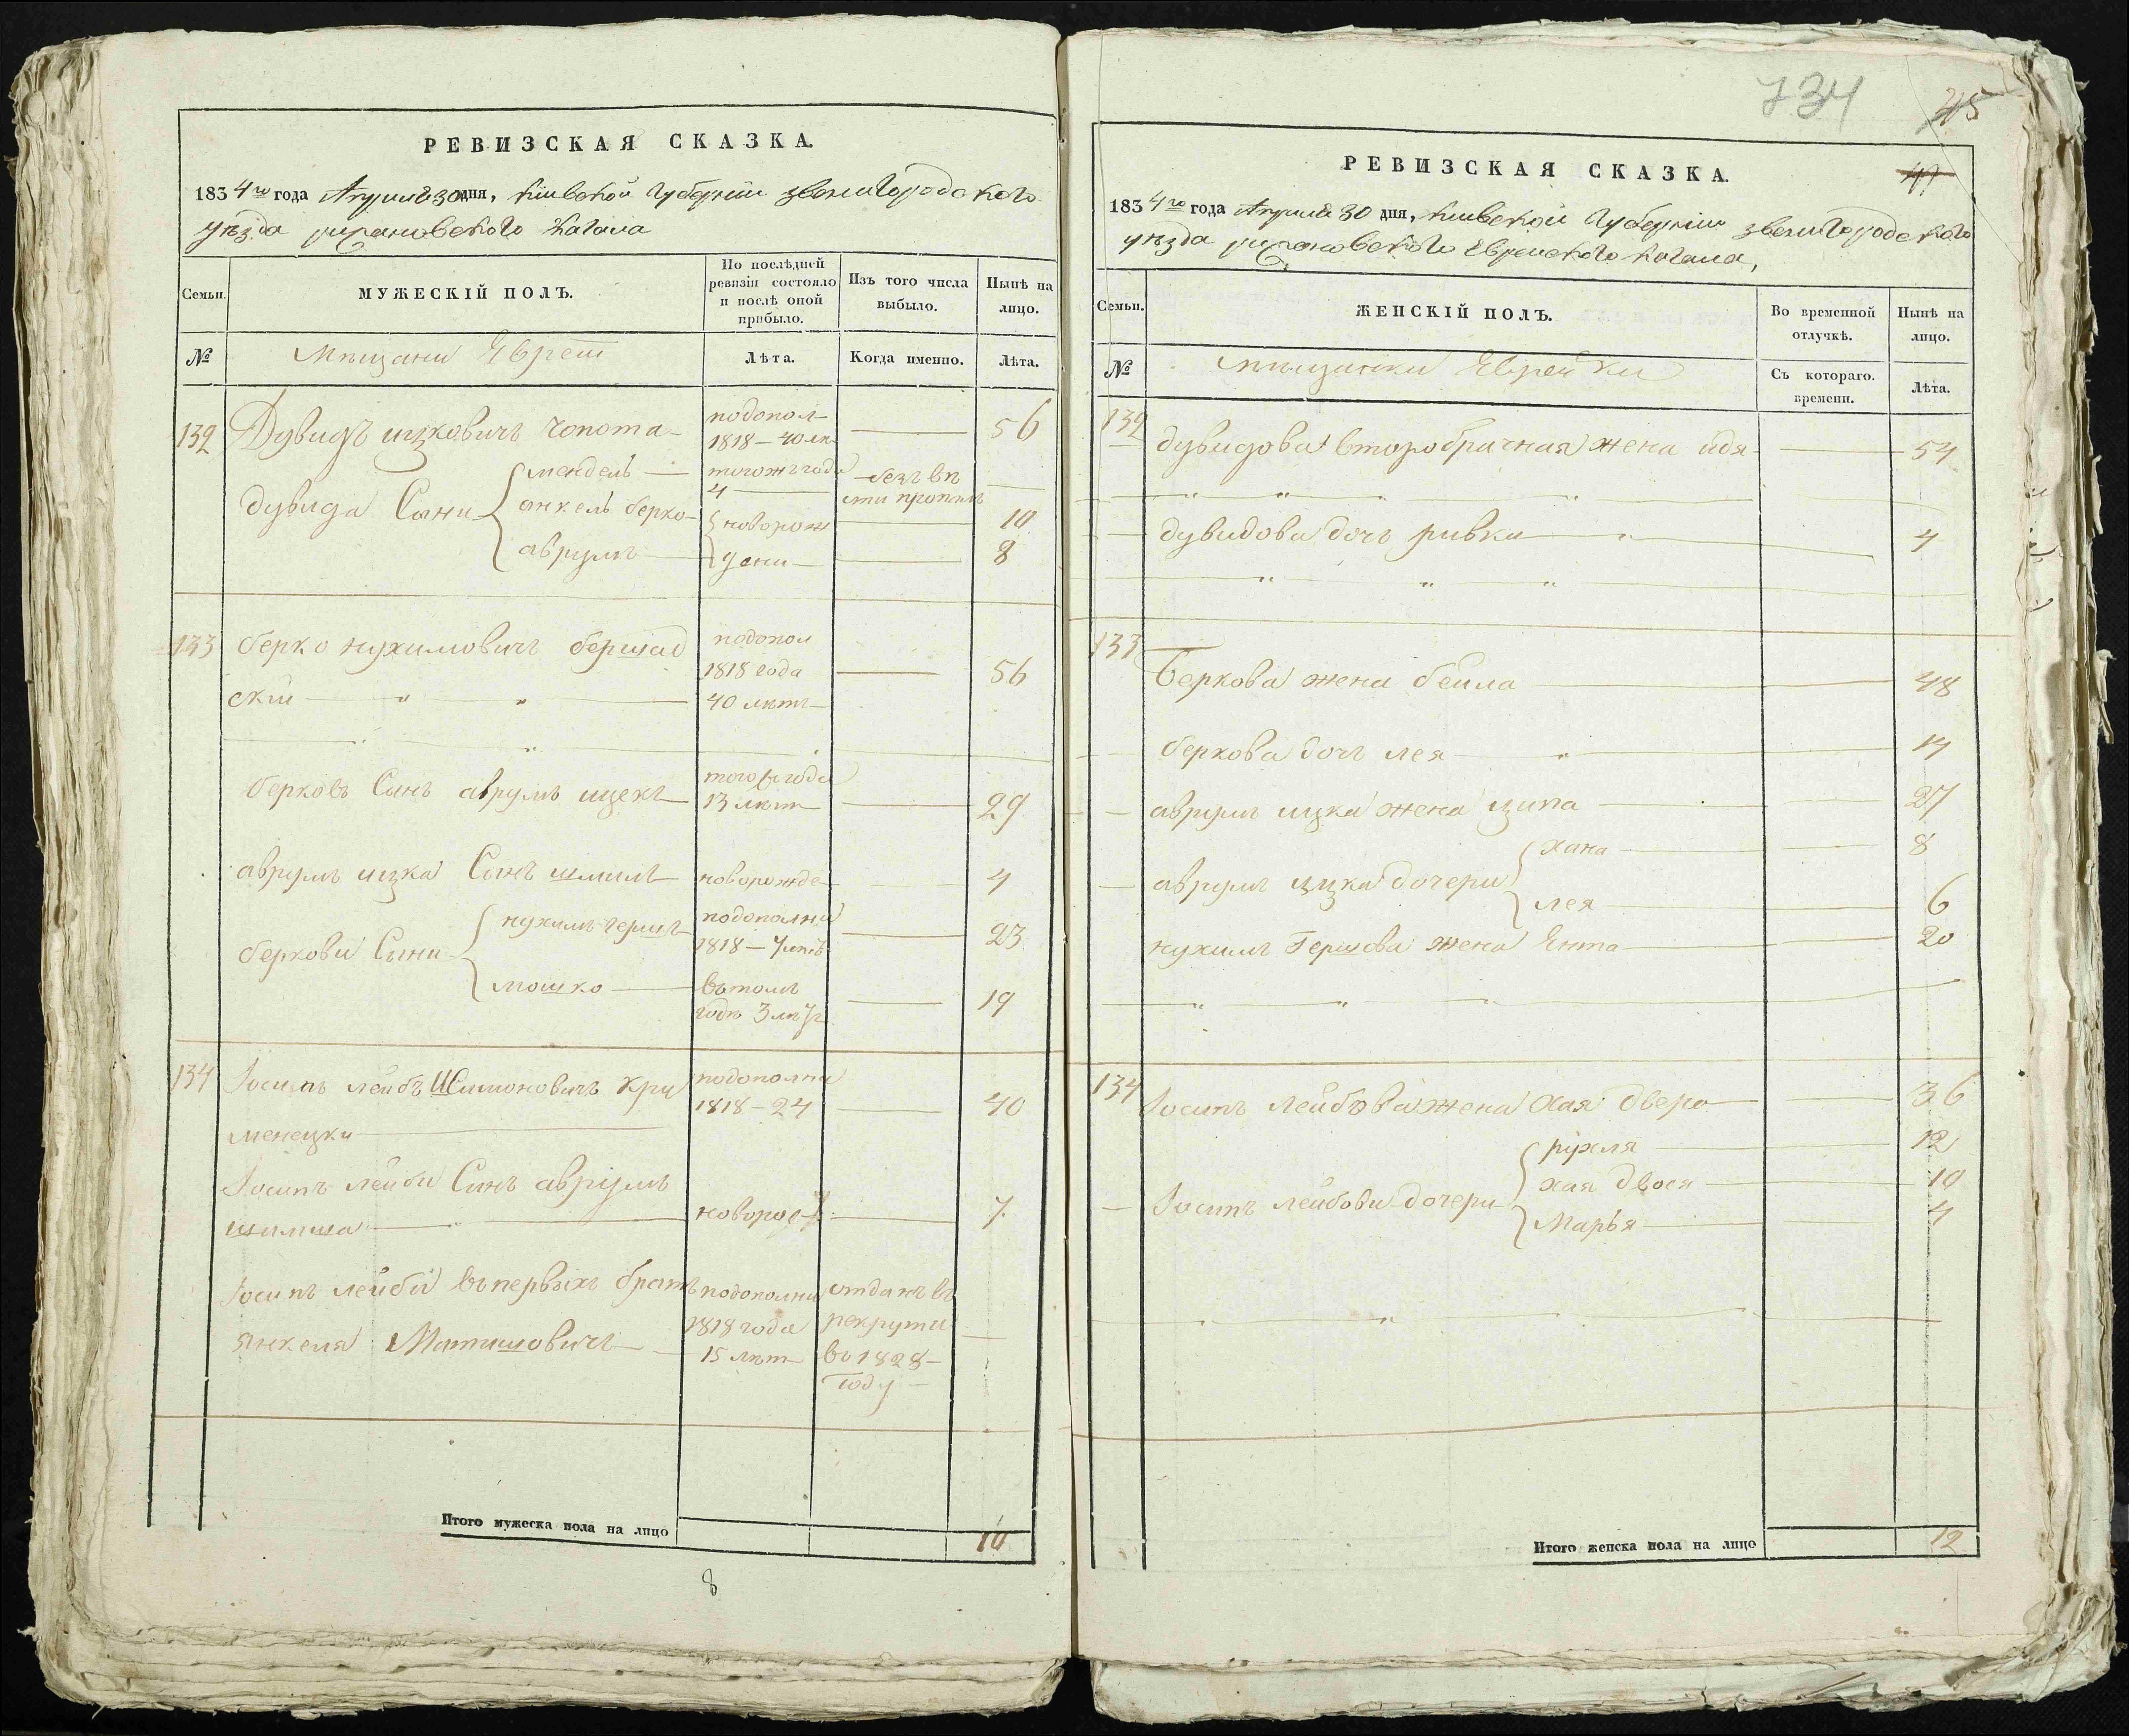 РЕВИЗСКАЯ СКАЗКА.
1834го года Апреля 30 дня, Киевской Губернии звенигородского
уѣзда рижановского Кагала
Семьи.
МУЖЕСКІЙ ПОЛЪ.
По послѣдней ревизіи состояло и послѣ оной прибыло.
Изъ того числа выбыло.
Нынѣ на лицо.
№
Мѣщани Евреи
Лѣта.
Когда именно.
Лѣта.
132 Дувидъ ицковичъ Чопота подопол 1818 – 40 лѣ 56
Дувида Сыни
мендель тогожъ года 4 безъ вѣсти пропалъ
анкель берко новорож 10
аврумъ дени 8
133 берко нухимовичъ бершад подопол 1818 года 40 лѣтъ 56
скій
берковъ Сынъ аврумъ ицекъ того года 13 лѣт 29
аврумъ ицка Сынъ шмиль новорожде 4
беркови Сыни
нухимъ гершъ подополни 1818 – 7 лѣтъ 23
мошко въ томъ годѣ 3 лѣ 19
134 Іосипъ лейбъ Шимоновичъ Кри подополни 1818 – 24 40
менецки
Іосипъ лейби Сынъ аврумъ
шимша новорож 7
Іосипъ лейби въ первыхъ братъ подополни отданъ въ
янкель Матишовичъ 1818 года 15 лѣт рекрути въ 1828 году
Итого мужеска пола на лицо 10
8
734
45
47
РЕВИЗСКАЯ СКАЗКА.
1834го года Апреля 30 дня, Киевской Губернии звенигородского
уѣзда рижановского Еврейского Кагала,
Семьи.
ЖЕНСКІЙ ПОЛЪ.
Во временной отлучкѣ.
Нынѣ на лицо.
№
мѣщанки Еврейки
Съ котораго времени.
Лѣта.
132 дувидова второбрачная жена идя 54
дувидова дочъ ривка 4
133
Беркова жена бейла 48
беркова дочъ лея 14
аврумъ ицка жена ципа 27
аврумъ ицка дочери
хана 8
лея 6
нухимъ Гершова жена Ента 20
134 Іосипъ лейбова жена Хая двера 36
Іосипъ лейбови дочери
рухля 12
хая двося 10
Марья 4
Итого женска пола на лицо 12